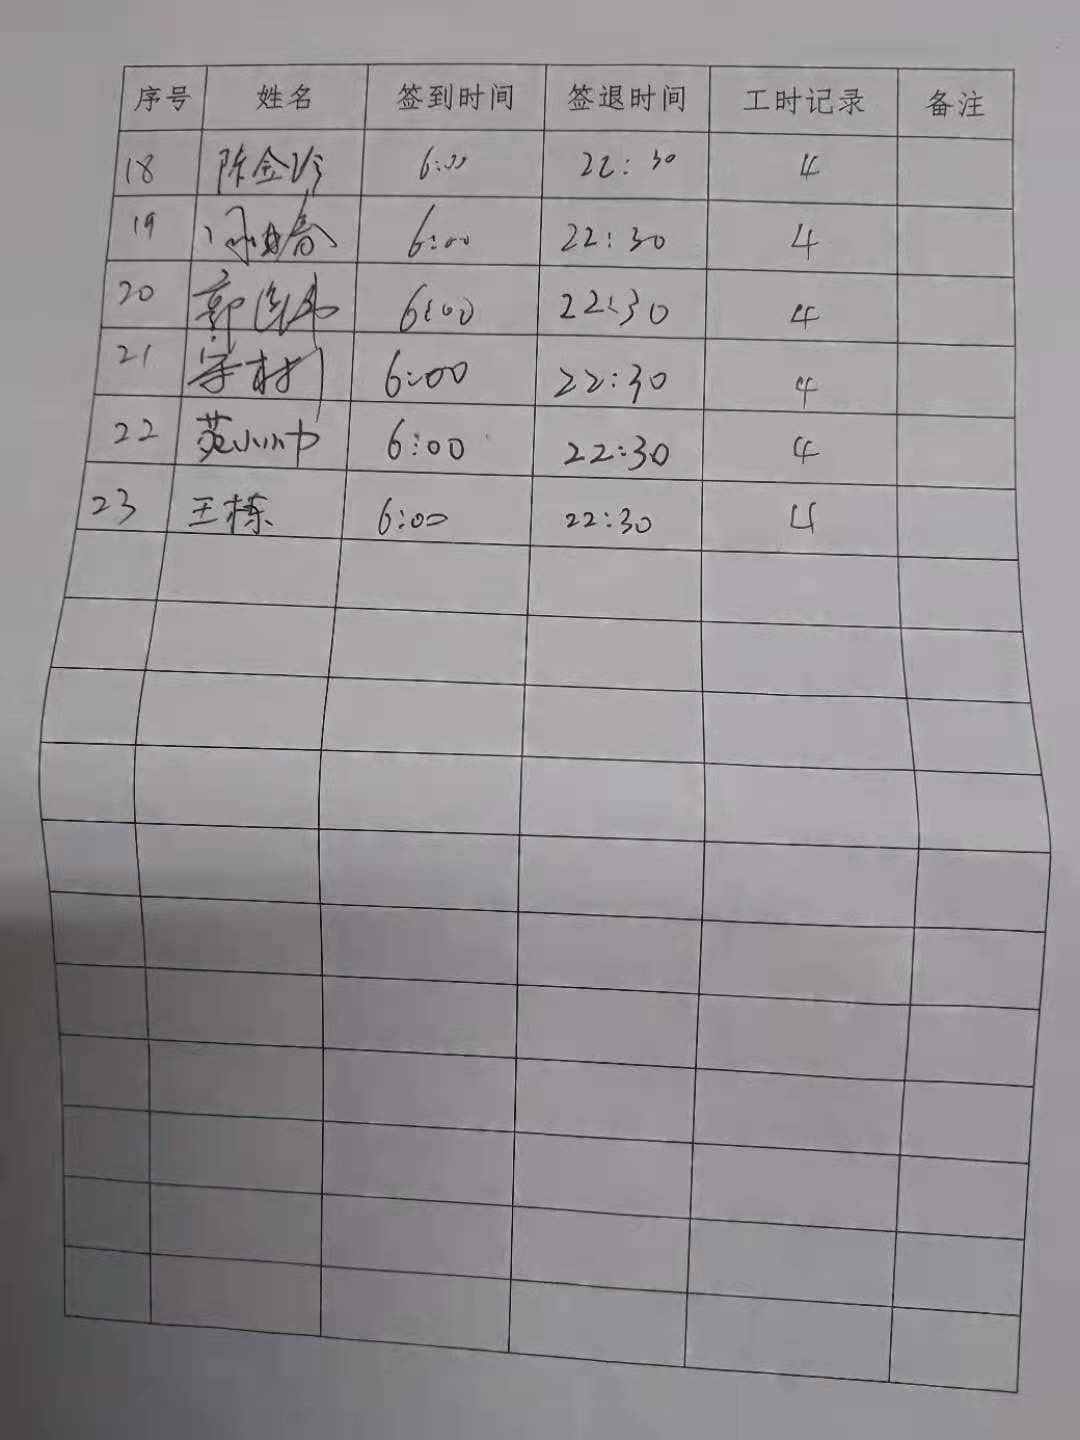 序号 姓名 签到时间 签退时间 工时记录 备注
18 陈金珍 6:00 22:30 4
19 春 6:00 22:30 4
20 郭 6:00 22:30 4
21 6:00 22:30 4
22 苑小巾 6:00 22:30 4
23 王栋 6:00 22:30 4